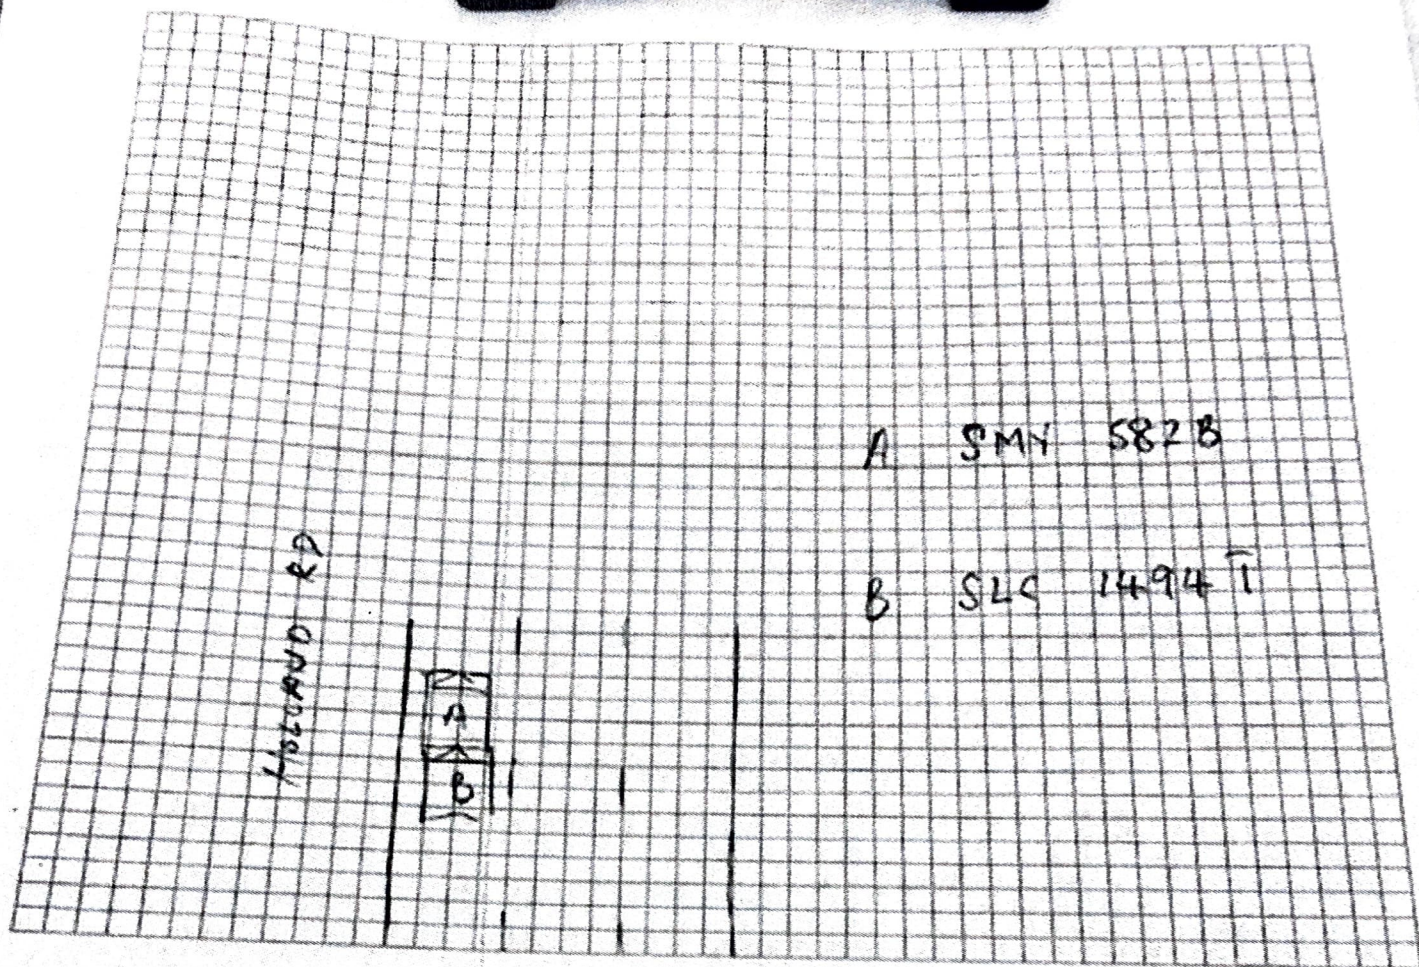 A SMY 582B
B SLS 1494T
HOLLAND RD
A
B